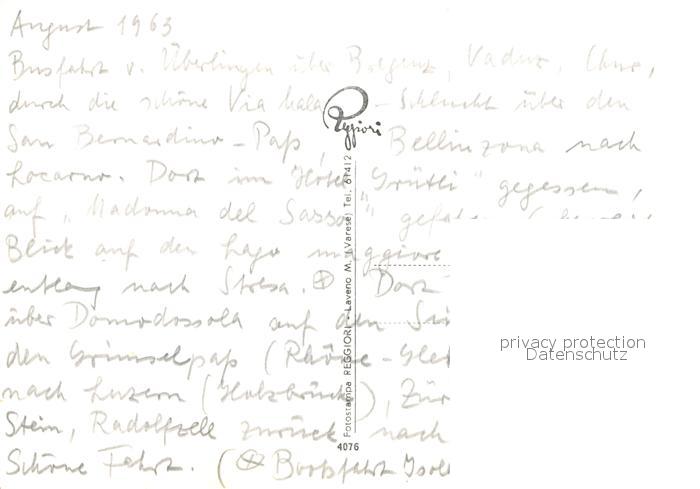 August 1963
Busfahrt v. Überlingen über Bregenz, Vaduz, Chur,
durch die schöne Via Mala - Schlucht über den
San Bernardino - Paß, Bellinzona nach
Locarno. Dort im Hotel "Grütli" gegessen,
auf "Madonna del Sasso"
Blick auf den Lago maggiore
entlang nach Stresa. ⊗ Dort
über Domodossola auf den
den Grimselpaß (Rhône - Glet
nach Luzern (Holzbrücke), Zür
Stein, Radolfzell zurück nach
Schöne Fahrt. (⊗ Bootsfahrt Isol
Reggiori
Fotostampa REGGIORI - Laveno M. (Varese) Tel. 61412
4076
privacy protection
Datenschutz